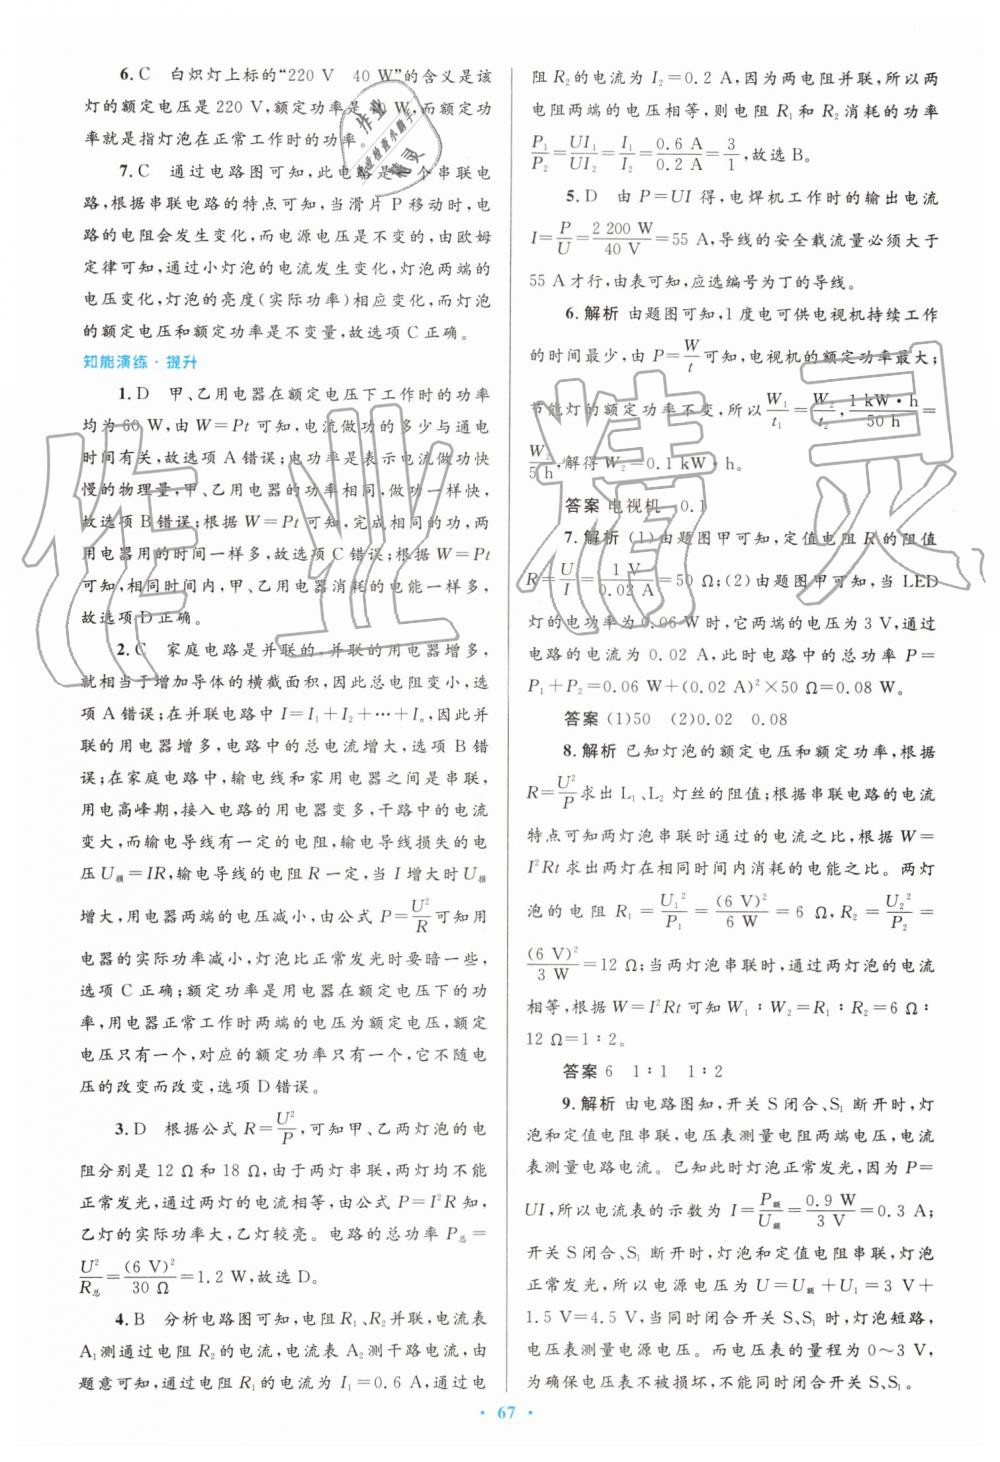 6. C　白炽灯上标的“220 V　40 W”的含义是该
灯的额定电压是 220 V,额定功率是 40 W,而额定功
率就是指灯泡在正常工作时的功率。
7. C　通过电路图可知,此电路是一个串联电
路,根据串联电路的特点可知,当滑片 P 移动时,电
路的电阻会发生变化,而电源电压是不变的,由欧姆
定律可知,通过小灯泡的电流发生变化,灯泡两端的
电压变化,灯泡的亮度(实际功率)相应变化,而灯泡
的额定电压和额定功率是不变量,故选项 C 正确。
知能演练·提升
1. D　甲、乙用电器在额定电压下工作时的功率
均为 60 W,由 W=Pt 可知,电流做功的多少与通电
时间有关,故选项 A 错误;电功率是表示电流做功快
慢的物理量,甲、乙用电器的功率相同,做功一样快,
故选项 B 错误;根据 W=Pt 可知,完成相同的功,两
用电器用的时间一样多,故选项 C 错误;根据 W=Pt
可知,相同时间内,甲、乙用电器消耗的电能一样多,
故选项 D 正确。
2. C　家庭电路是并联的,并联的用电器增多,
就相当于增加导体的横截面积,因此总电阻变小,选
项 A 错误;在并联电路中 I=I₁+I₂+…+Iₙ,因此并
联的用电器增多,电路中的总电流增大,选项 B 错
误;在家庭电路中,输电线和家用电器之间是串联,
用电高峰期,接入电路的用电器变多,干路中的电流
变大,而输电导线有一定的电阻,输电导线损失的电
压 U损=IR,输电导线的电阻 R 一定,当 I 增大时 U损
增大,用电器两端的电压减小,由公式 P=U²/R 可知用
电器的实际功率减小,灯泡比正常发光时要暗一些,
选项 C 正确;额定功率是用电器在额定电压下的功
率,用电器正常工作时两端的电压为额定电压,额定
电压只有一个,对应的额定功率只有一个,它不随电
压的改变而改变,选项 D 错误。
3. D　根据公式 R=U²/P,可知甲、乙两灯泡的电
阻分别是 12 Ω 和 18 Ω,由于两灯串联,两灯均不能
正常发光,通过两灯的电流相等,由公式 P=I²R 知,
乙灯的实际功率大,乙灯较亮。电路的总功率 P总=
U²/R总=(6 V)²/30 Ω=1.2 W,故选 D。
4. B　分析电路图可知,电阻 R₁、R₂ 并联,电流表
A₁测通过电阻 R₂ 的电流,电流表 A₂ 测干路电流,由
题意可知,通过电阻 R₁ 的电流为 I₁=0.6 A,通过电
阻 R₂ 的电流为 I₂=0.2 A,因为两电阻并联,所以两
电阻两端的电压相等,则电阻 R₁和 R₂ 消耗的功率
P₁/P₂=UI₁/UI₂=I₁/I₂=0.6 A/0.2 A=3/1,故选 B。
5. D　由 P=UI 得,电焊机工作时的输出电流
I=P/U=2 200 W/40 V=55 A,导线的安全载流量必须大于
55 A才行,由表可知,应选编号为丁的导线。
6. 解析　由题图可知,1 度电可供电视机持续工作
的时间最少,由 P=W/t 可知,电视机的额定功率最大;
节能灯的额定功率不变,所以 W₁/t₁=W₂/t₂,1 kW·h/50 h=
W₂/5 h,解得 W₂=0.1 kW·h。
答案　电视机　0.1
7. 解析　(1)由题图甲可知,定值电阻 R 的阻值
R=U/I=1 V/0.02 A=50 Ω;(2)由题图甲可知,当 LED
灯的电功率为 0.06 W时,它两端的电压为 3 V,通过
电路的电流为 0.02 A,此时电路中的总功率 P=
P₁+P₂=0.06 W+(0.02 A)²×50 Ω=0.08 W。
答案　(1)50　(2)0.02　0.08
8. 解析　已知灯泡的额定电压和额定功率,根据
R=U²/P求出 L₁、L₂ 灯丝的阻值;根据串联电路的电流
特点可知两灯泡串联时通过的电流之比,根据 W=
I²Rt 求出两灯在相同时间内消耗的电能之比。两灯
泡的电阻 R₁=U₁²/P₁=(6 V)²/6 W=6 Ω,R₂=U₂²/P₂=
(6 V)²/3 W=12 Ω;当两灯泡串联时,通过两灯泡的电流
相等,根据 W=I²Rt 可知 W₁∶W₂=R₁∶R₂=6 Ω∶
12 Ω=1∶2。
答案　6　1∶1　1∶2
9. 解析　由电路图知,开关 S闭合、S₁ 断开时,灯
泡和定值电阻串联,电压表测量电阻两端电压,电流
表测量电路电流。已知此时灯泡正常发光,因为 P=
UI,所以电流表的示数为 I=P额/U额=0.9 W/3 V=0.3 A;
开关 S闭合、S₁断开时,灯泡和定值电阻串联,灯泡
正常发光,所以电源电压为 U=U额+U₁=3 V+
1.5 V=4.5 V,当同时闭合开关 S、S₁ 时,灯泡短路,
电压表测量电源电压。而电压表的量程为 0～3 V,
为确保电压表不被损坏,不能同时闭合开关 S、S₁。
·67·
作业精灵